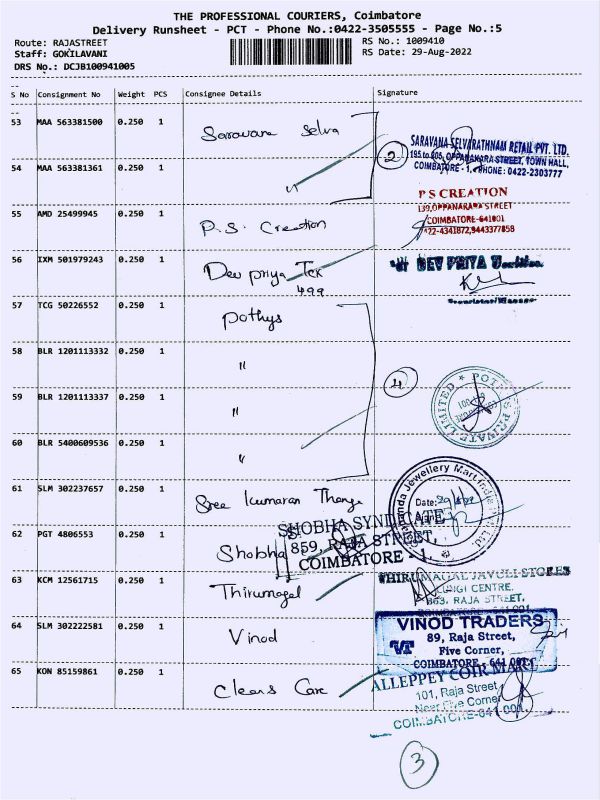 THE PROFESSIONAL COURIERS, Coimbatore
Delivery Runsheet - PCT - Phone No.:0422-3505555 - Page No.:5
Route: RAJASTREET
RS No.: 1009410
Staff: GOKILAVANI
RS Date: 29-Aug-2022
DRS No.: DCJB100941005
S No Consignment No Weight PCS Consignee Details Signature
53 MAA 563381500 0.250 1 Saravana Selva
2
SARAVANA SELVARATHNAM RETAIL PVT. LTD.
195 to 605, OPPANAKARA STREET, TOWN HALL,
COIMBATORE - 1, PHONE: 0422-2303777
54 MAA 563381361 0.250 1 "
P S CREATION
139, OPPANAKARA STREET
COIMBATORE-641001
55 AMD 25499945 0.250 1 P.S. Creation
0422-4341872,9443377858
56 IXM 501979243 0.250 1 Dev priya Tex
499
DEV PRIYA
57 TCG 50226552 0.250 1 Pothys
58 BLR 1201113332 0.250 1 "
4
POTHYS PRIVATE LIMITED
59 BLR 1201113337 0.250 1 "
60 BLR 5400609536 0.250 1 "
61 SLM 302237657 0.250 1 Sree Kumaran Thanga
Jewellery Mart India
Date:
SHOBHA SYNDICATE
859, RAJA STREET,
COIMBATORE - 1.
62 PGT 4806553 0.250 1 Shobha
63 KCM 12561715 0.250 1 Thirumagal
THIRUMAGAL JAVULI STORES
LUNGI CENTRE,
863, RAJA STREET,
COIMBATORE - 641 001
64 SLM 302222581 0.250 1 Vinod
VINOD TRADERS
VT
89, Raja Street,
Five Corner,
COIMBATORE - 641 001.
65 KON 85159861 0.250 1 Cleans Care
ALLEPPEY COIR MART
101, Raja Street
Near Five Corner
COIMBATORE-641 001.
3